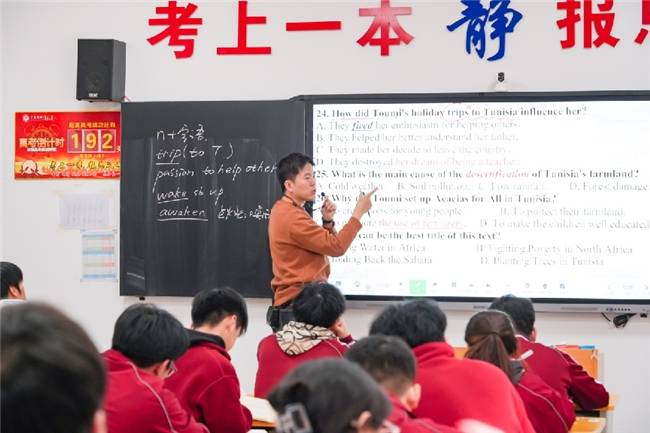 考上一本 静 报
高考倒计时
192
n+会话
trip(to T)
passion to help other
wake sb up
awaken
24. How did Toumi's holiday trips to Tunisia influence her?
A. They fired her enthusiasm for helping others.
B. They helped her better understand her father.
C. They made her decide to leave the country.
D. They destroyed her dream of being a teacher.
25. What is the main cause of the desertification of Tunisia's farmland?
A. Cold weather. B. Soil pollution. C. Low rainfall. D. Forest damage.
Why Toumi set up Acacias for All in Tunisia?
for young people. B. To protect their farmland.
the use of fertilizers. D. To make the children well educated.
can be the best title of this text?
Water in Africa B. Fighting Poverty in North Africa
Back the Sahara D. Planting Trees in Tunisia